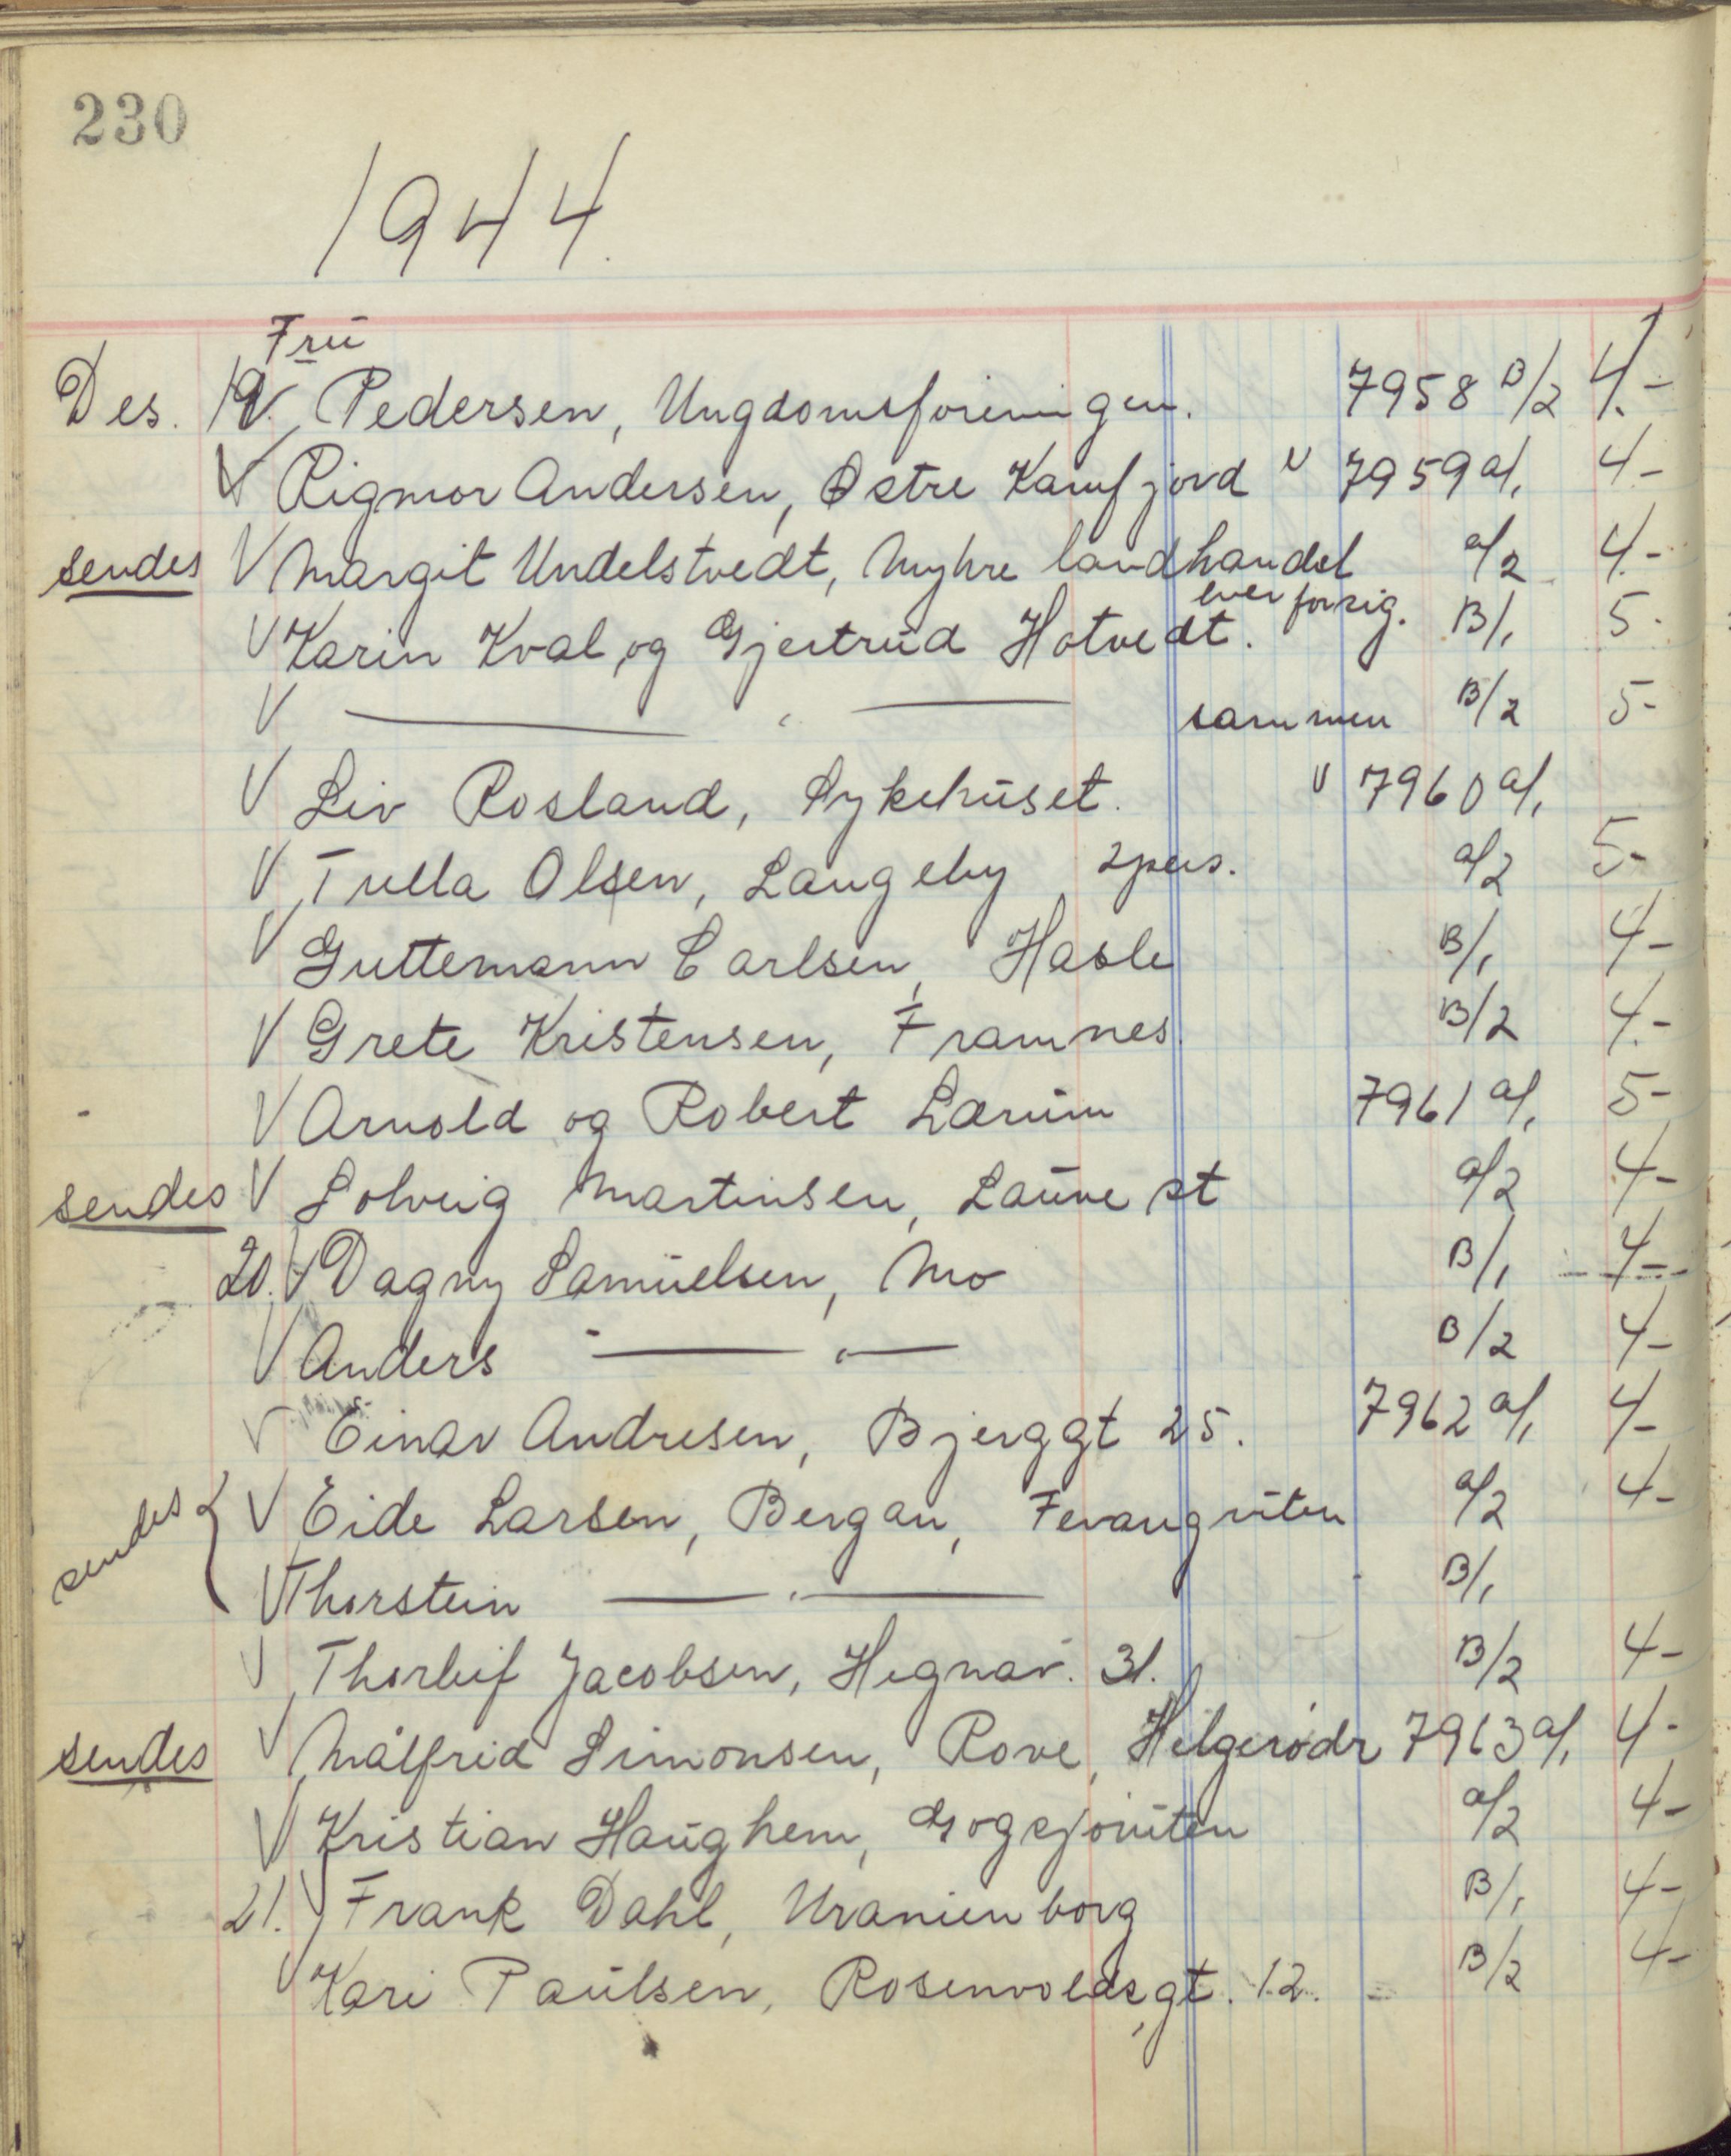 230
1944.
Fru
Des. 19. V Pedersen, Ungdomsforeningen. 7958 B/2 4.-
V Rigmor Andersen, Østre Kamfjord V 7959 a/1 4-
sendes V Margit Undelstvedt, Myhre landhandel a/2 4-
hver for sig.
V Karin Kval og Gjertrud Hotvedt. B/1 5-
V —— " —— sammen B/2 5-
V Liv Rosland, Sykehuset. V 7960 a/1
V Tulla Olsen, Laugeby 2 pers. a/2 5-
V Guttemann Carlsen, Hasle B/1 4-
V Grete Kristensen, Framnes B/2 4-
V Arnold og Robert Lærum 7961 a/1 5-
sendes V Solveig Martinsen, Lauve st a/2 4-
20. V Dagny Samuelsen, Mo B/1 4-
V Anders —— " —— B/2 4-
V Einar Andresen, Bjerggt 25. 7962 a/1 4-
sendes { V Eide Larsen, Bergan, Fevangruten a/2 4-
V Thorstein —— " —— B/1
V Thorleif Jacobsen, Hegnav. 31. B/2 4-
sendes V Målfrid Simonsen, Rove, Helgerødr 7963 a/1 4-
V Kristian Haughem, Gogsjøruten a/2 4-
21. V Frank Dahl, Uranienborg B/1 4-
V Kari Paulsen, Rosenvoldsgt. 12. B/2 4-